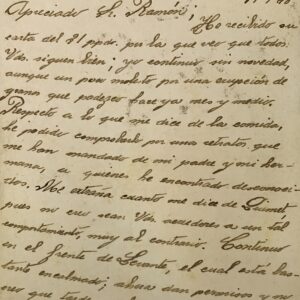 Apreciado Sr. Ramón: He recibido su
carta del 21 ppdo. por la que veo que todos
Vds. siguen bien; yo continuo sin novedad,
aunque un poco molesto por una erupción de
granos que padezco hace ya mes y medio.
Respecto a lo que me dice de la comida,
he podido comprobarlo por una retratos que
me han mandado de mi padre y mi her-
mana, a quienes he encontrado desconoci-
dos. Me extraña cuanto me dice de Quimet
pues no creo sean Vds acredores a un tal
comportamiento, muy al contrario. Continuo
en el frente de Levante, el cual está bas-
tante encalmado; ahora dan permisos y no
creo que